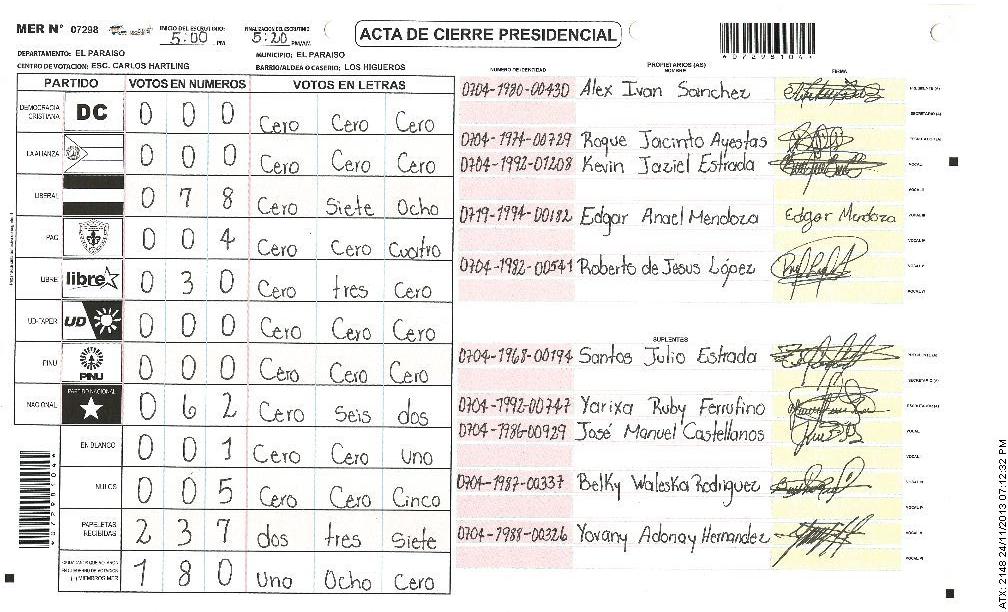 MER Nº 07298 INICIO DEL ESCRUTINIO: 5:00 PM FINALIZACION DEL ESCRUTINIO 5:20 PM/AM
ACTA DE CIERRE PRESIDENCIAL
DEPARTAMENTO: EL PARAISO MUNICIPIO: EL PARAISO
CENTRO DE VOTACION: ESC. CARLOS HARTLING BARRIO/ALDEA O CASERIO: LOS HIGUEROS
PARTIDO VOTOS EN NUMEROS VOTOS EN LETRAS
DEMOCRACIA CRISTIANA DC 0 0 0 Cero Cero Cero
LA ALIANZA 0 0 0 Cero Cero Cero
LIBERAL 0 7 8 Cero Siete Ocho
PAC 0 0 4 Cero Cero Cuatro
LIBRE libre 0 3 0 Cero tres Cero
UD-FAPER UD 0 0 0 Cero Cero Cero
PINU PINU 0 0 0 Cero Cero Cero
NACIONAL PARTIDO NACIONAL 0 6 2 Cero Seis dos
EN BLANCO 0 0 1 Cero Cero uno
NULOS 0 0 5 Cero Cero Cinco
PAPELETAS RECIBIDAS 2 3 7 dos tres Siete
MIEMBROS MER 1 8 0 Uno Ocho Cero
NUMERO DE IDENTIDAD PROPIETARIOS (AS) NOMBRE FIRMA
0704-1980-00430 Alex Ivan Sanchez
0704-1974-00729 Roque Jacinto Ayestas
0704-1992-01208 Kevin Jaziel Estrada
0719-1994-00182 Edgar Anael Mendoza Edgar Mendoza
0704-1982-00541 Roberto de Jesus López
SUPLENTES
0704-1968-00194 Santos Julio Estrada
0704-1992-00747 Yarixa Ruby Ferrufino
0704-1986-00929 José Manuel Castellanos
0704-1987-00337 Belky Waleska Rodriguez
0704-1988-00326 Yovany Adonay Hernandez
ATX: 2148 24/11/2013 07:12:32 PM